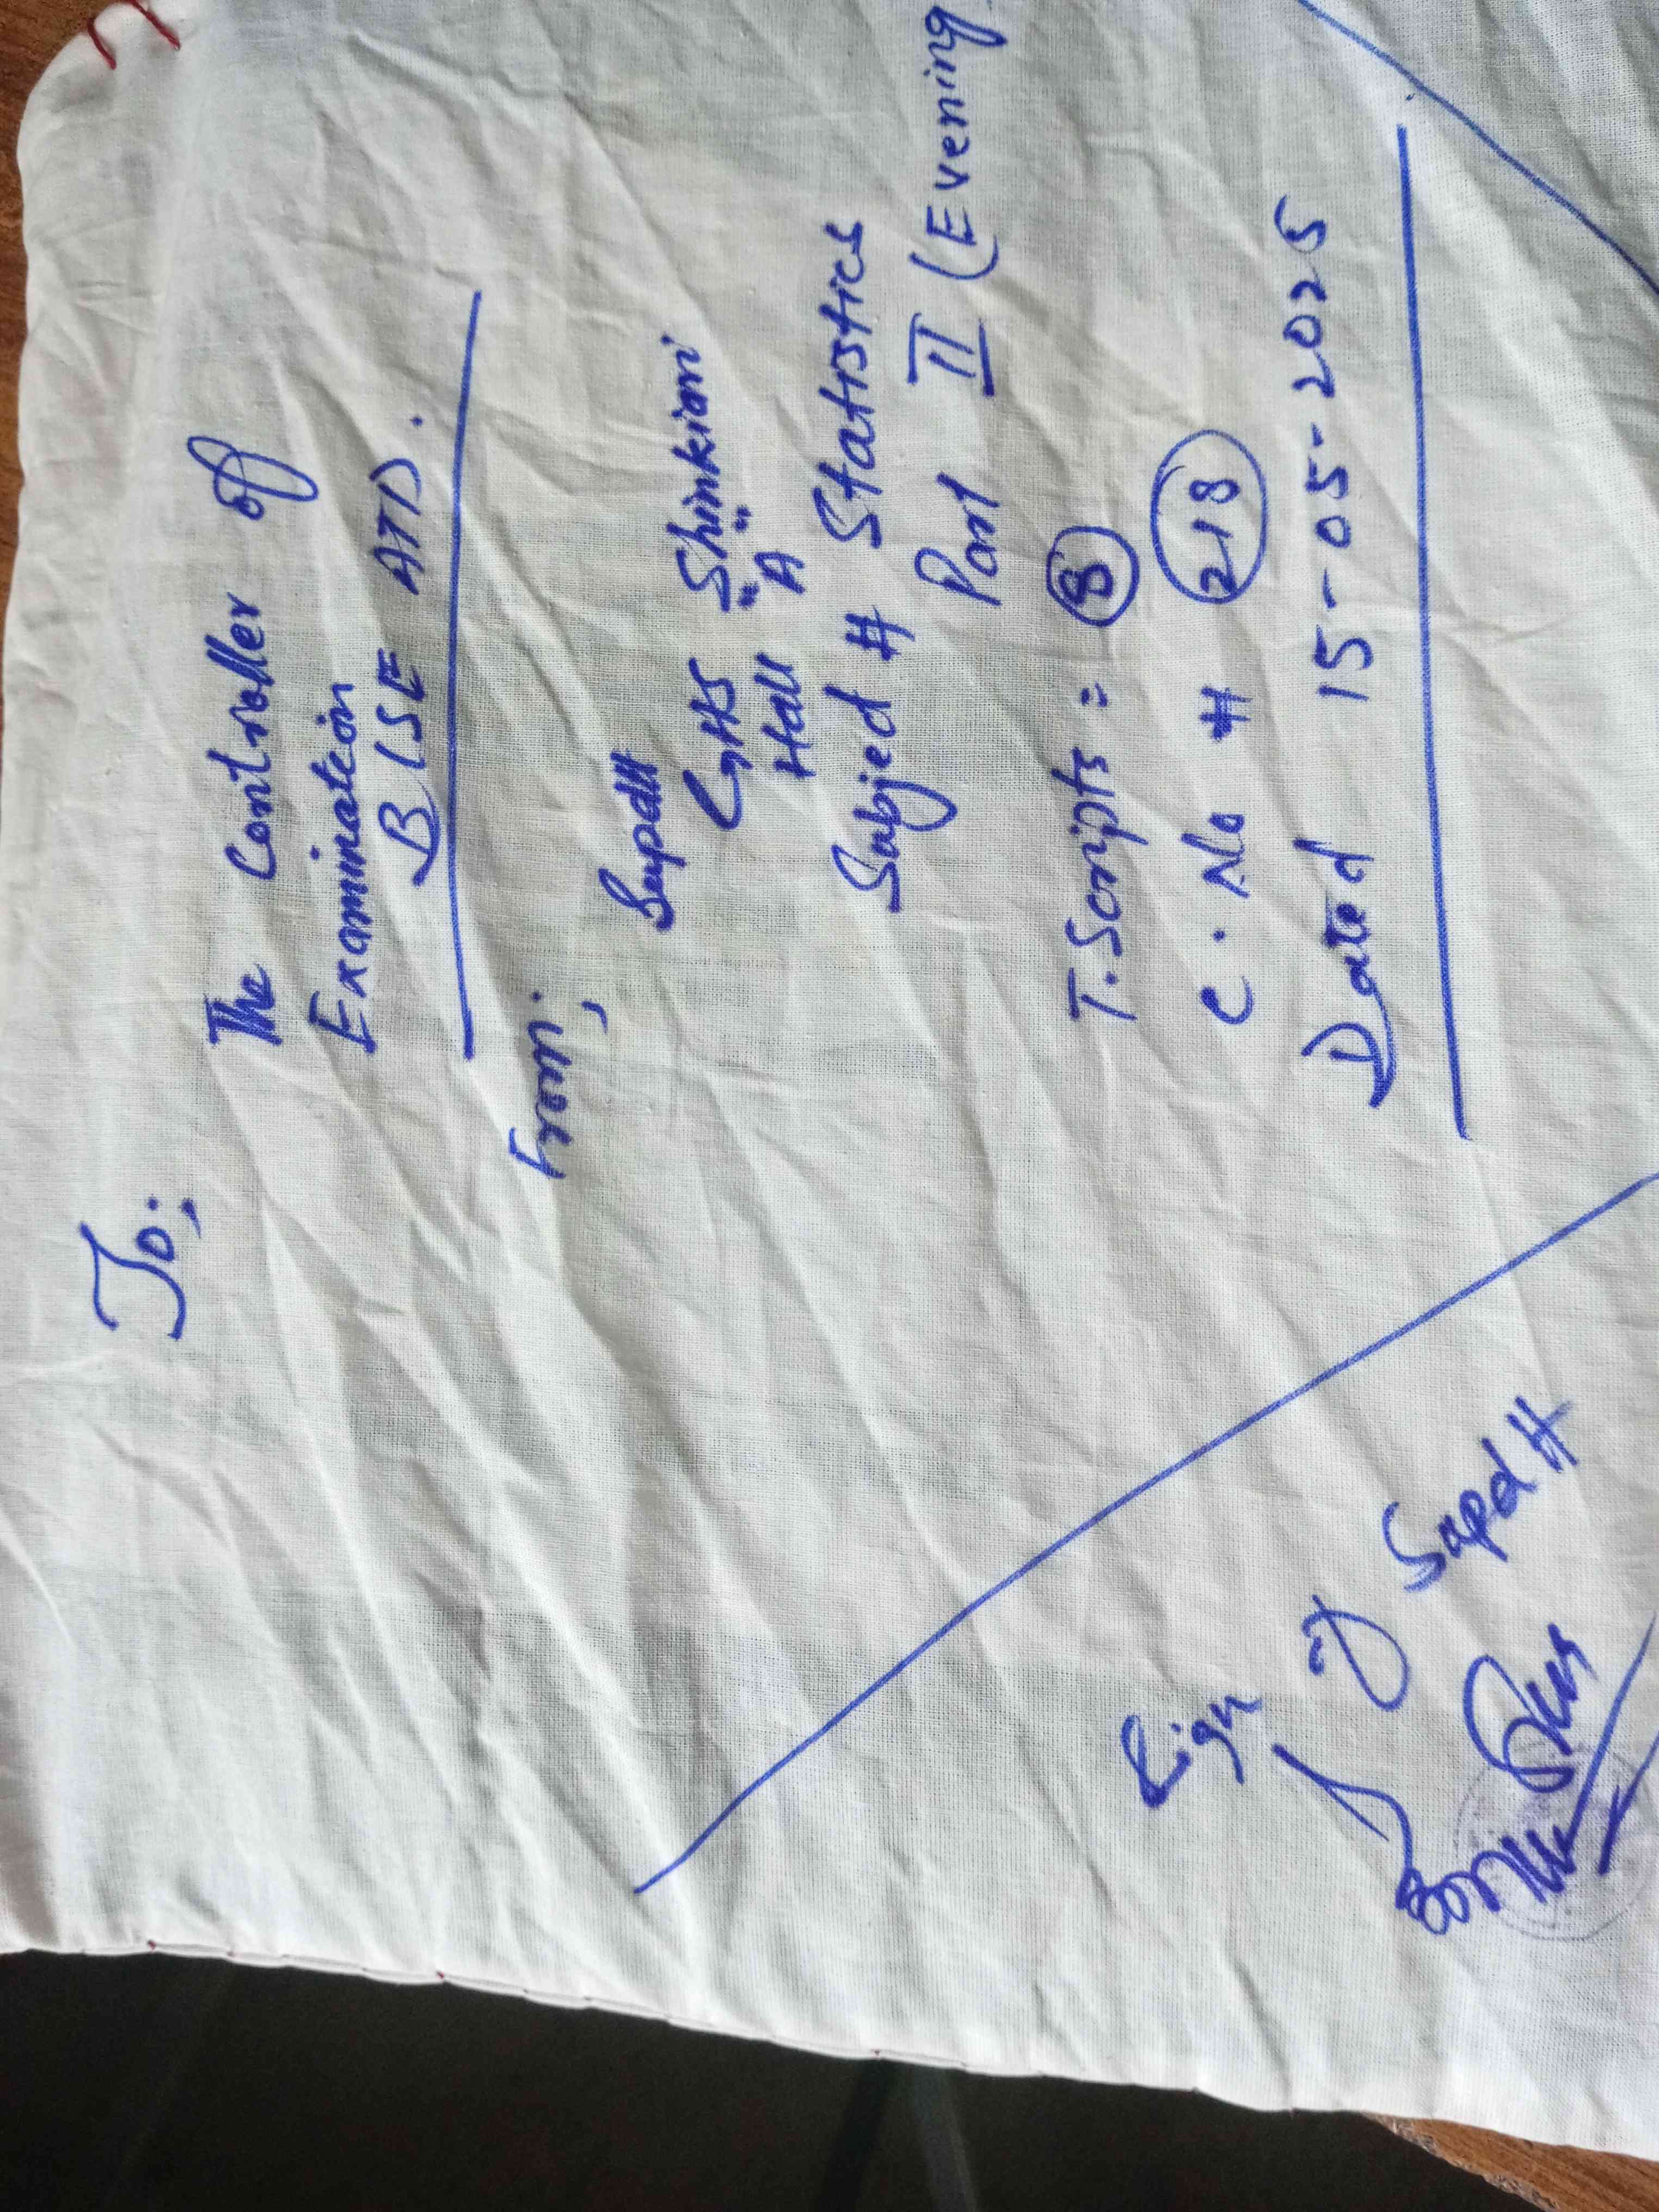 To;
The Controller of
Examination
BISE ATD.
From;
Supdtt
GHS Shinkiari
Hall "A"
Subject # Statistics
Part II (Evening
T.Scripts = 8
C. No # 218
Dated 15-05-2025
Sign
Supdtt